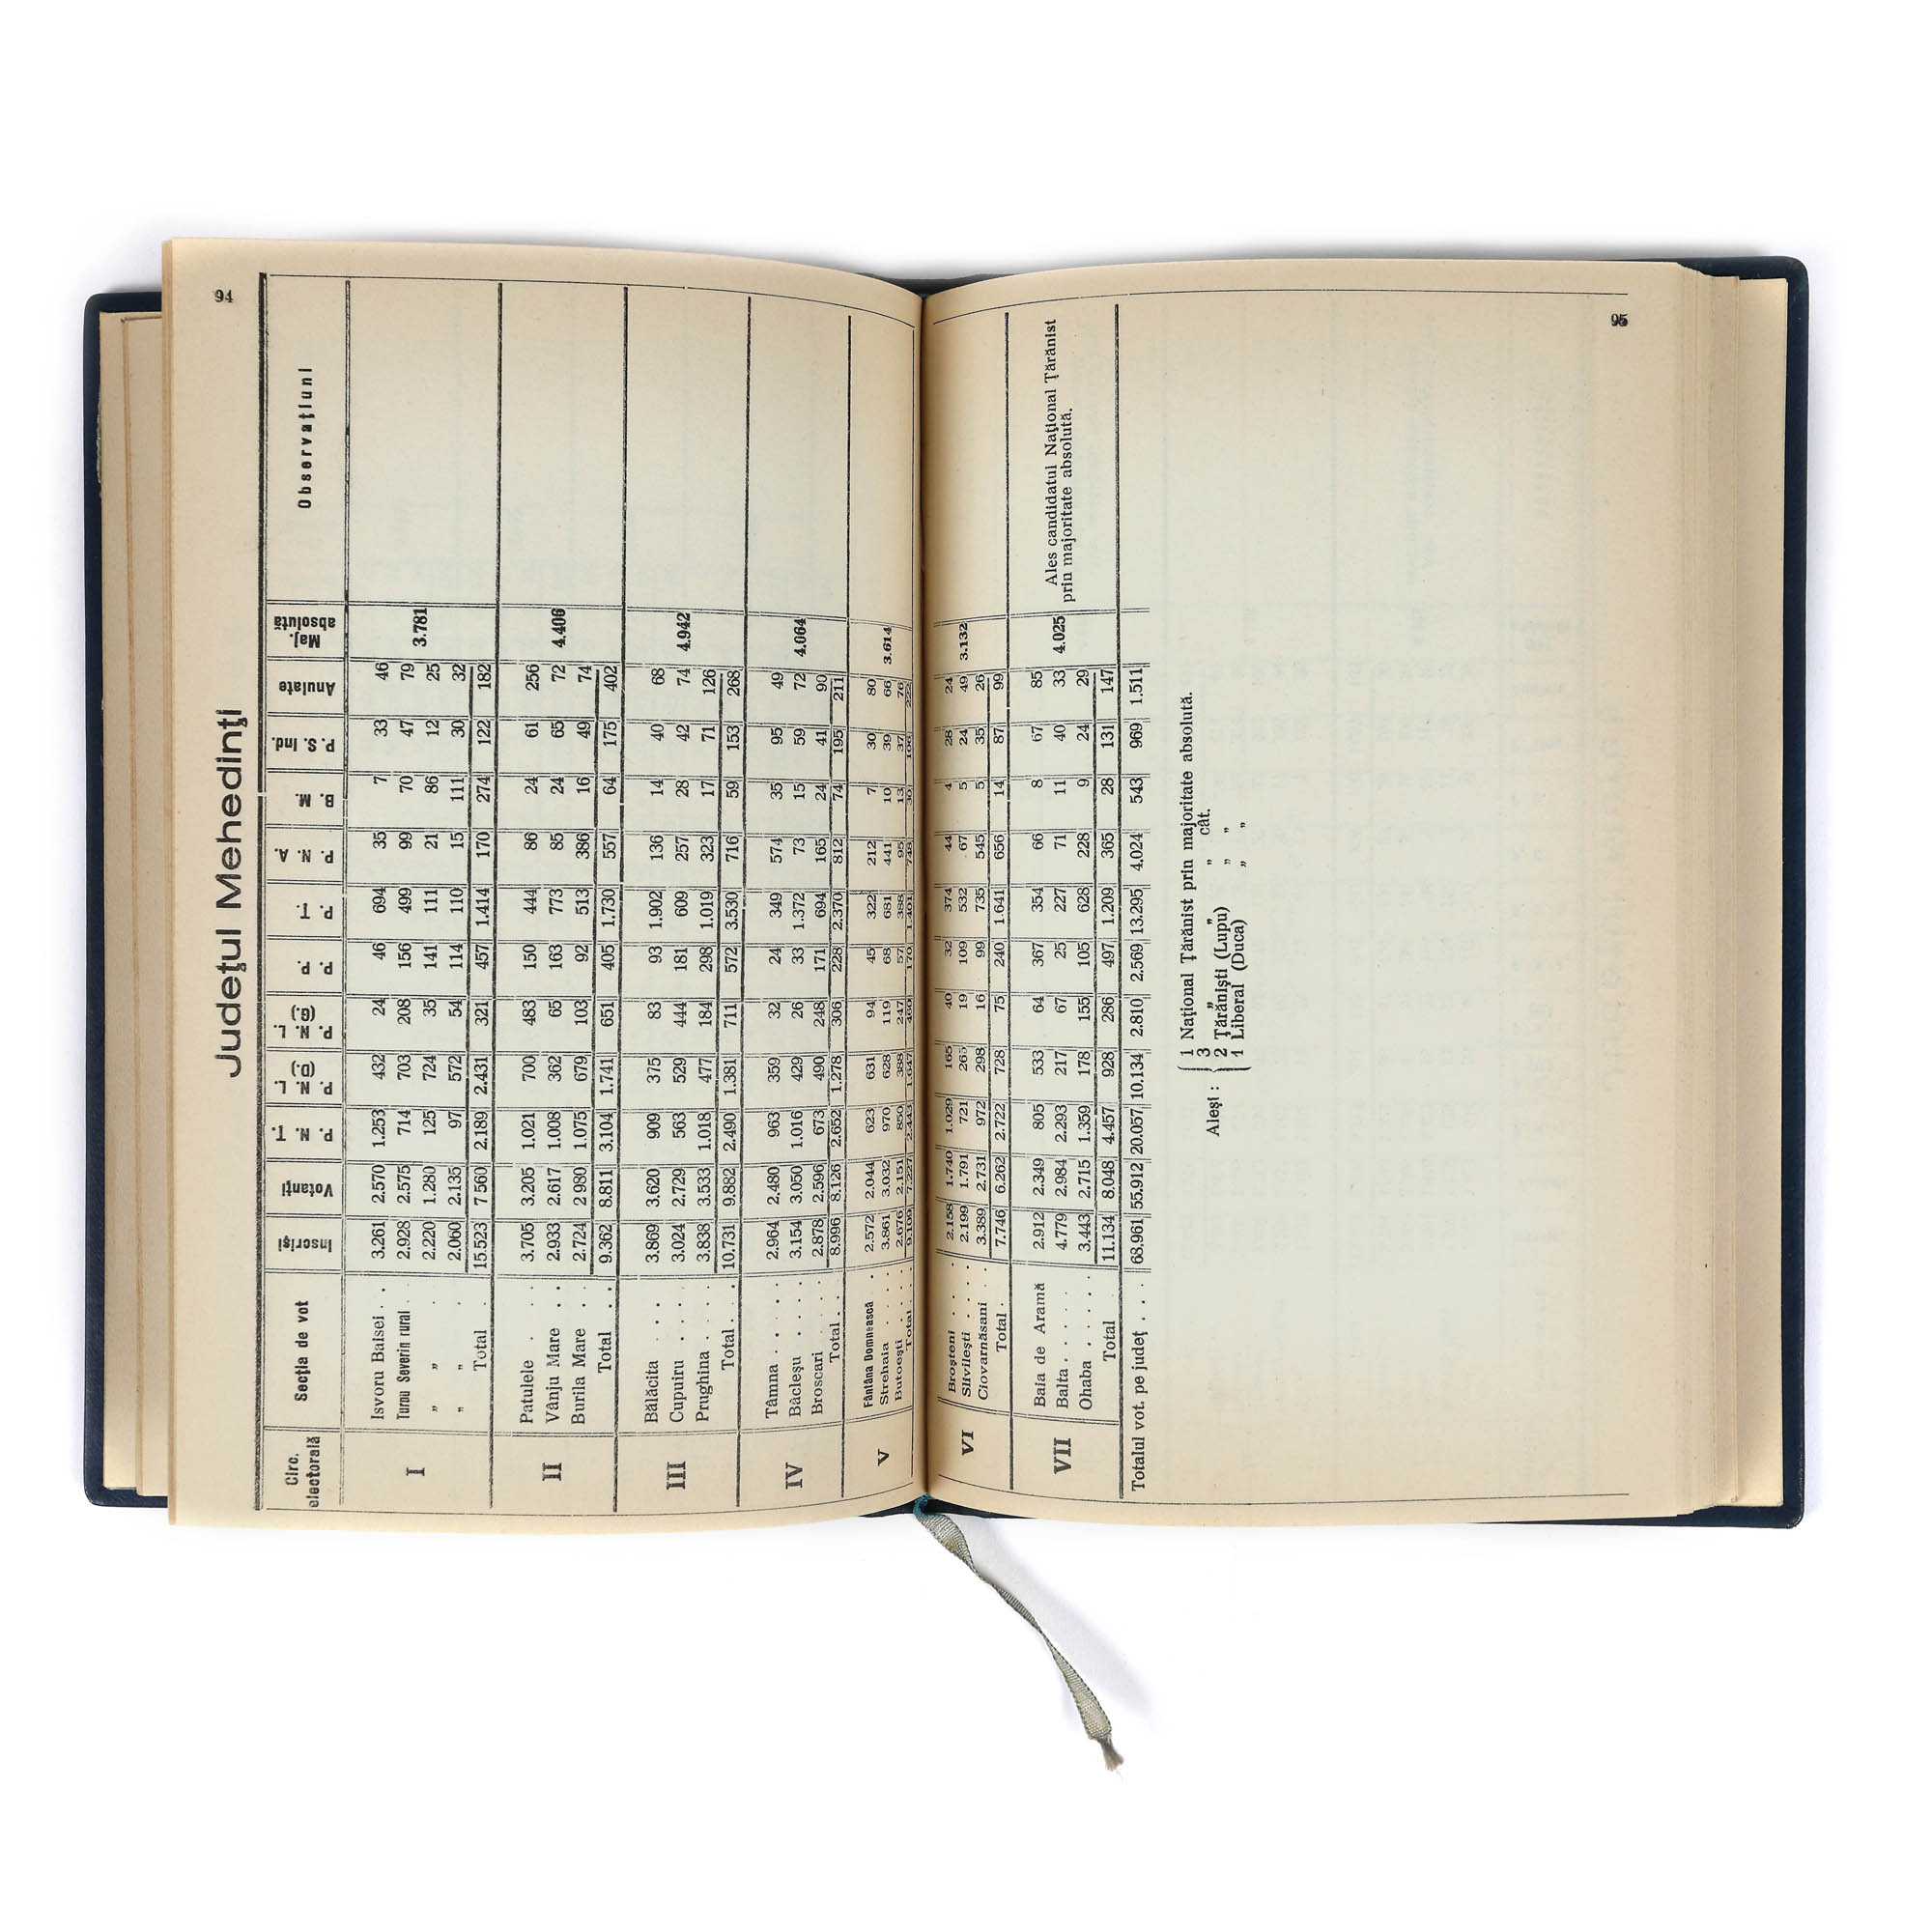 94
Județul Mehedinți
Circ. electorală Secția de vot Inscriși Votanți P. N. Ț. P. N. L. (D.) P. N. L. (G.) P. P. P. T. P. N. A. B. M. P. S. Ind. Anulate Maj. absolută Observațiuni
I Isvoru Baisei . . 3.261 2.570 1.253 432 24 46 694 35 7 33 46 3.781
Turnu Severin rural . 2.928 2.575 714 703 208 156 499 99 70 47 79
„ „ . 2.220 1.280 125 724 35 141 111 21 86 12 25
„ „ . 2.060 2.135 97 572 54 114 110 15 111 30 32
Total . 15.523 7 560 2.189 2.431 321 457 1.414 170 274 122 182
II Patulele . . . 3.705 3.205 1.021 700 483 150 444 86 24 61 256 4.406
Vânju Mare . . 2.933 2.617 1.008 362 65 163 773 85 24 65 72
Burila Mare . . 2.724 2 980 1.075 679 103 92 513 386 16 49 74
Total . . 9.362 8.811 3.104 1.741 651 405 1.730 557 64 175 402
III Bălăcita . . . 3.869 3.620 909 375 83 93 1.902 136 14 40 68 4.942
Cupuiru . . . 3.024 2.729 563 529 444 181 609 257 28 42 74
Prughina . . . 3.838 3.533 1.018 477 184 298 1.019 323 17 71 126
Total . . 10.731 9.882 2.490 1.381 711 572 3.530 716 59 153 268
IV Tâmna . . . . 2.964 2.480 963 359 32 24 349 574 35 95 49 4.064
Bâcleșu . . . . 3.154 3.050 1.016 429 26 33 1.372 73 15 59 72
Broscari . . 2.878 2.596 673 490 248 171 694 165 24 41 90
Total . . 8.996 8.126 2.652 1.278 306 228 2.370 812 74 195 211
V Fântâna Domnească . 2.572 2.044 623 631 94 45 322 212 7 30 80 3.614
Strehaia . . . . 3.861 3.032 970 628 119 68 681 441 10 39 66
Butoești . . . 2.676 2.151 850 388 247 57 388 95 13 37 76
Total . . 9.109 7.227 2.443 1.647 460 170 1.401 748 30 106 222
95
VI Broșteni . . . 2.158 1.740 1.029 165 40 32 374 44 4 28 24 3.132
Slivilești . . . . 2.199 1.791 721 265 19 109 532 67 5 24 49
Ciovarnăsani . . 3.389 2.731 972 298 16 99 735 545 5 35 26
Total . 7.746 6.262 2.722 728 75 240 1.641 656 14 87 99
VII Baia de Aramă 2.912 2.349 805 533 64 367 354 66 8 67 85 4.025 Ales candidatul Național Țărănist
Balta . . . . . 4.779 2.984 2.293 217 67 25 227 71 11 40 33 prin majoritate absolută.
Ohaba . . . . . 3.443 2.715 1.359 178 155 105 628 228 9 24 29
Total . 11.134 8.048 4.457 928 286 497 1.209 365 28 131 147
Totalul vot. pe județ . . . 68.961 55.912 20.057 10.134 2.810 2.569 13.295 4.024 543 969 1.511
Aleși : 1 Național Țărănist prin majoritate absolută.
3 „ „ „ cât.
2 Țărăniști (Lupu) „ „
1 Liberal (Duca) „ „